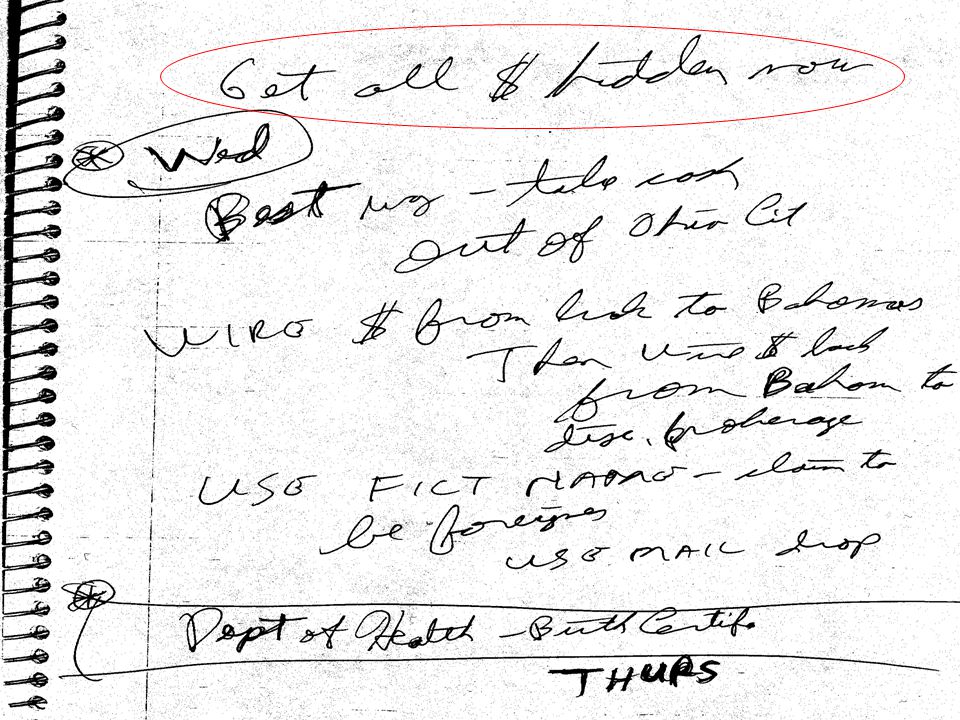 Get all $ hidden now
Wed
Best way - take cash
out of Ohio Cit
WIRE $ from bank to Bahamas
Then wire $ back
from Baham to
disc. brokerage
USE FICT NAME - claim to
be foreigner
USE MAIL drop
Dept of Health - Birth Certif
THURS